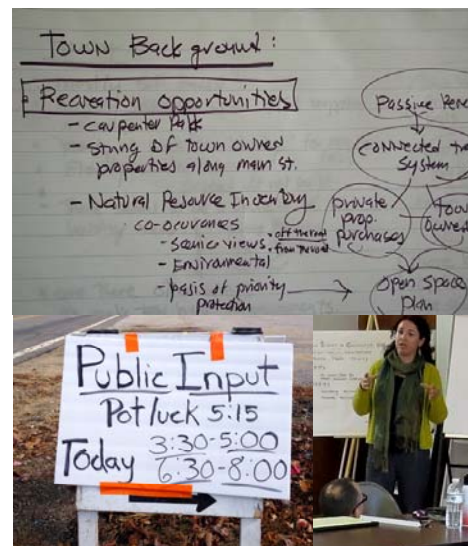 Town Background:
Recreation opportunities
- Carpenter Park
- String of town owner
properties along main st.
- Natural Resource Inventory
co-occurances
- scenic views
• off the road
• from the road
- Environmental
- basis of priority
protection
Passive
Connected
System
private
prop.
purchases
Open Space
Plan
Public Input
Potluck 5:15
Today 3:30-5:00
6:30-8:00